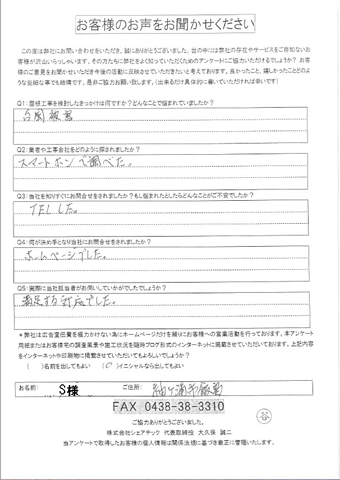 お客様のお声をお聞かせください
この度は弊社にお問い合わせをいただき、誠にありがとうございました。世の中には弊社の存在やサービスをご存知ないお
客様が沢山いらっしゃいます。その方たちに弊社をよく知っていただくためのアンケートにご協力いただけるでしょうか？お客
様のご意見をお聞かせいただき今後の活動に反映させていきたいと考えております。良かったこと、嬉しかったことどのよ
うな些細な事でも結構です。是非ご協力お願い致します。（出来るだけ具体的に書いていただければ幸いです）
Q1：屋根工事を検討したきっかけは何ですか？どんなことで悩まれていましたか？
台風被害
Q2：業者や工事会社をどのように探されましたか？
スマートホンで調べた。
Q3：当社を知りすぐにお問合せをされましたか？もし悩まれたとしたらどんなことがご不安でしたか？
TELした。
Q4：何が決め手となり当社にお問合せをされましたか？
ホームページでした。
Q5：実際に当社担当者がお伺いしていかがでしたでしょうか？
満足する対応でした。
＊弊社は広告宣伝費を極力かけない為にホームページだけを頼りにお客様への営業活動を行っております。本アンケート
用紙またはお客様宅の調査風景や施工状況を随時ブログ形式のインターネットに掲載させていただいております。上記内容
をインターネットや印刷物に掲載させていただいてもよろしいでしょうか？
（　）名前を出してもよい　（○）イニシャルなら出してもよい
お名前： S様 ご住所： 袖ケ浦市蔵波
FAX 0438-38-3310
ご協力ありがとうございました。
株式会社シェアテック 代表取締役 大久保 誠二
当アンケートで取得したお客様の個人情報は関係法規に基づき厳正に管理いたします。